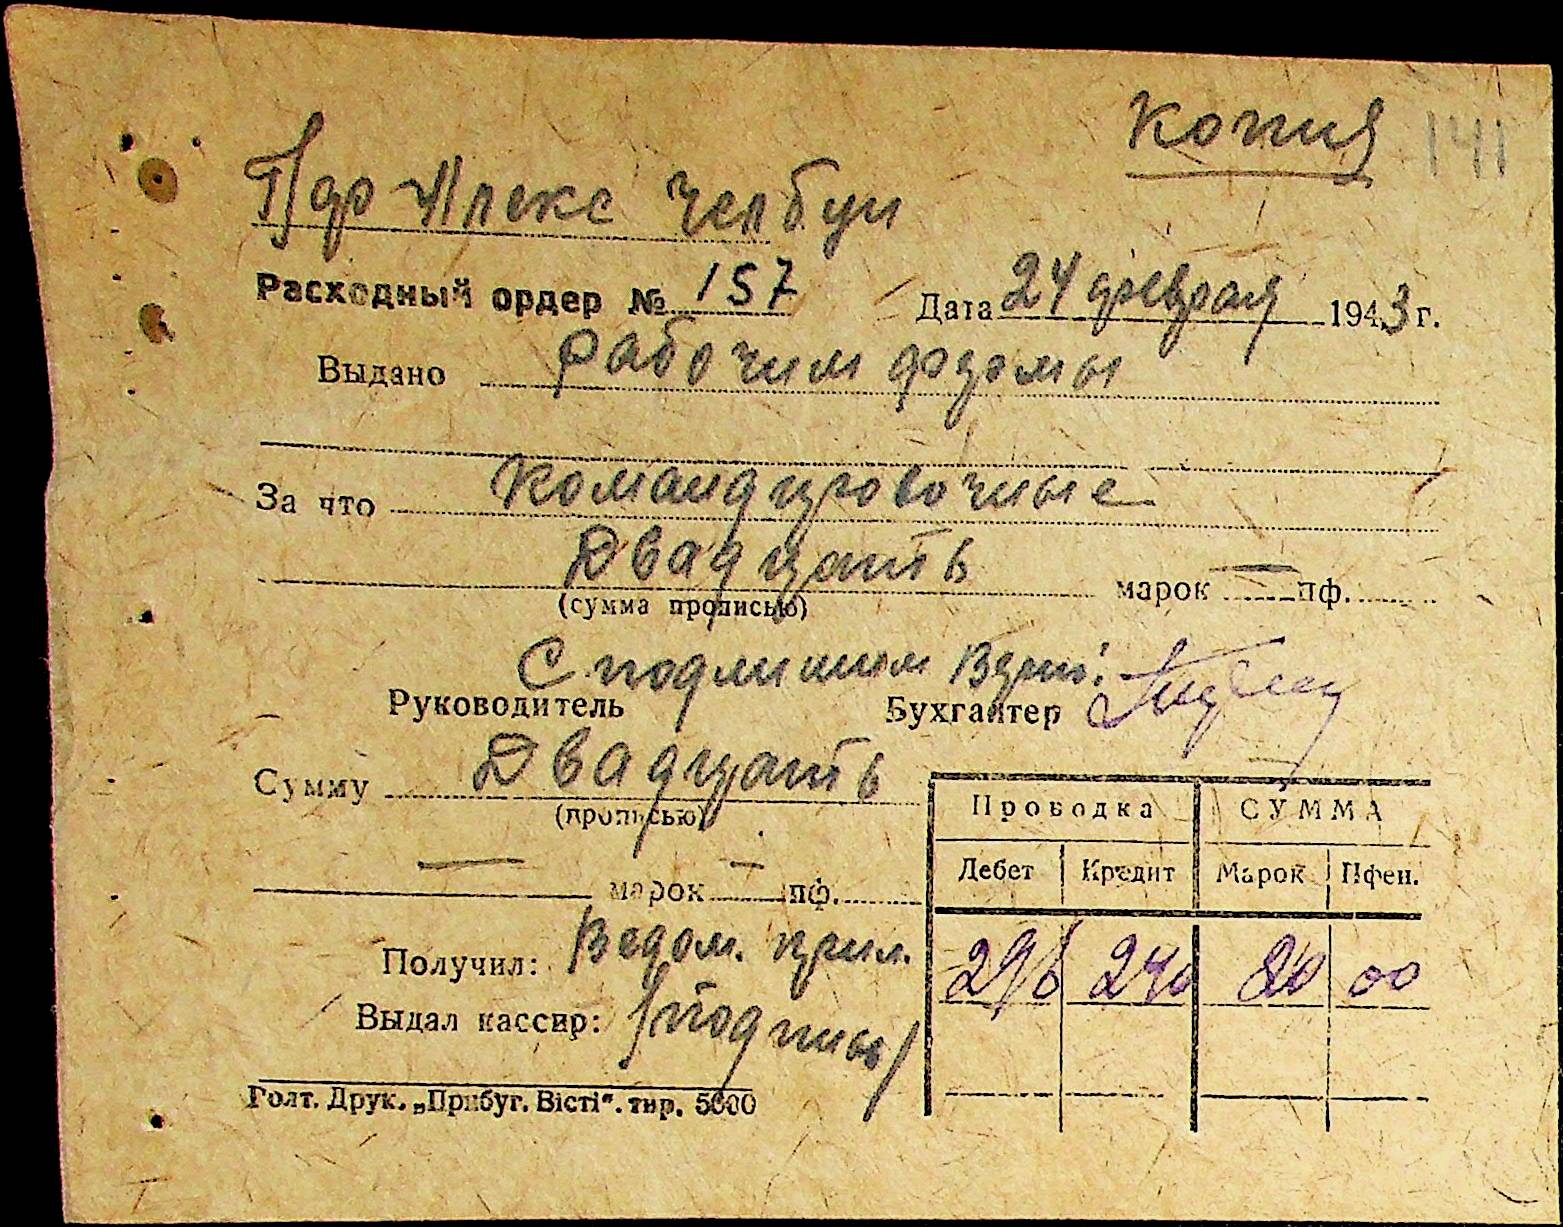 Копия 141
Расходный ордер № 157 Дата 24 февраля 1943 г.
Выдано рабочим фермы
За что Командировочные
Двадцать марок — пф.
(сумма прописью)
С подлинным Верно:
Руководитель Бухгалтер
Сумму Двадцать
(прописью)
— марок — пф.
Проводка СУММА
Дебет Кредит Марок Пфен.
296 240 20 00
Получил: Ведом. прил.
Выдал кассир: /подпись/
Голт. Друк. „Прибуг. Вісті“. тир. 5000